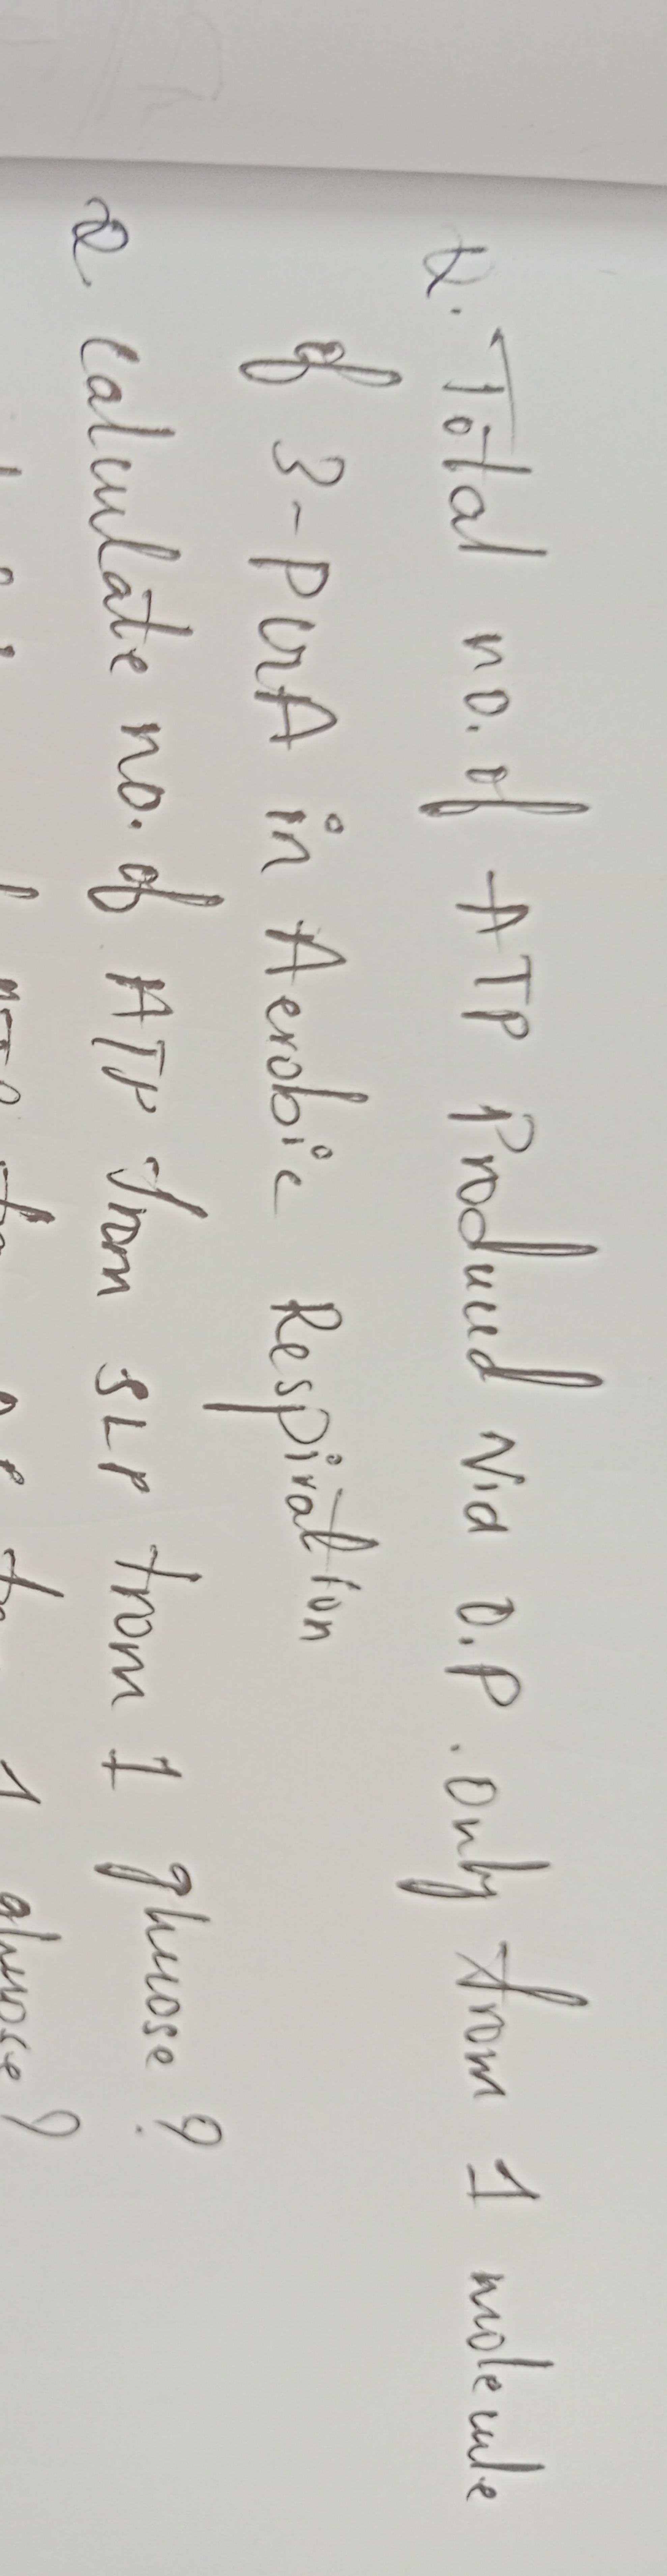 Q. Total no. of ATP Produced via O.P. only from 1 molecule
of 3-PGA in Aerobic Respiration
Q. Calculate no. of ATP from SLP from 1 glucose ?
1 glucose ?